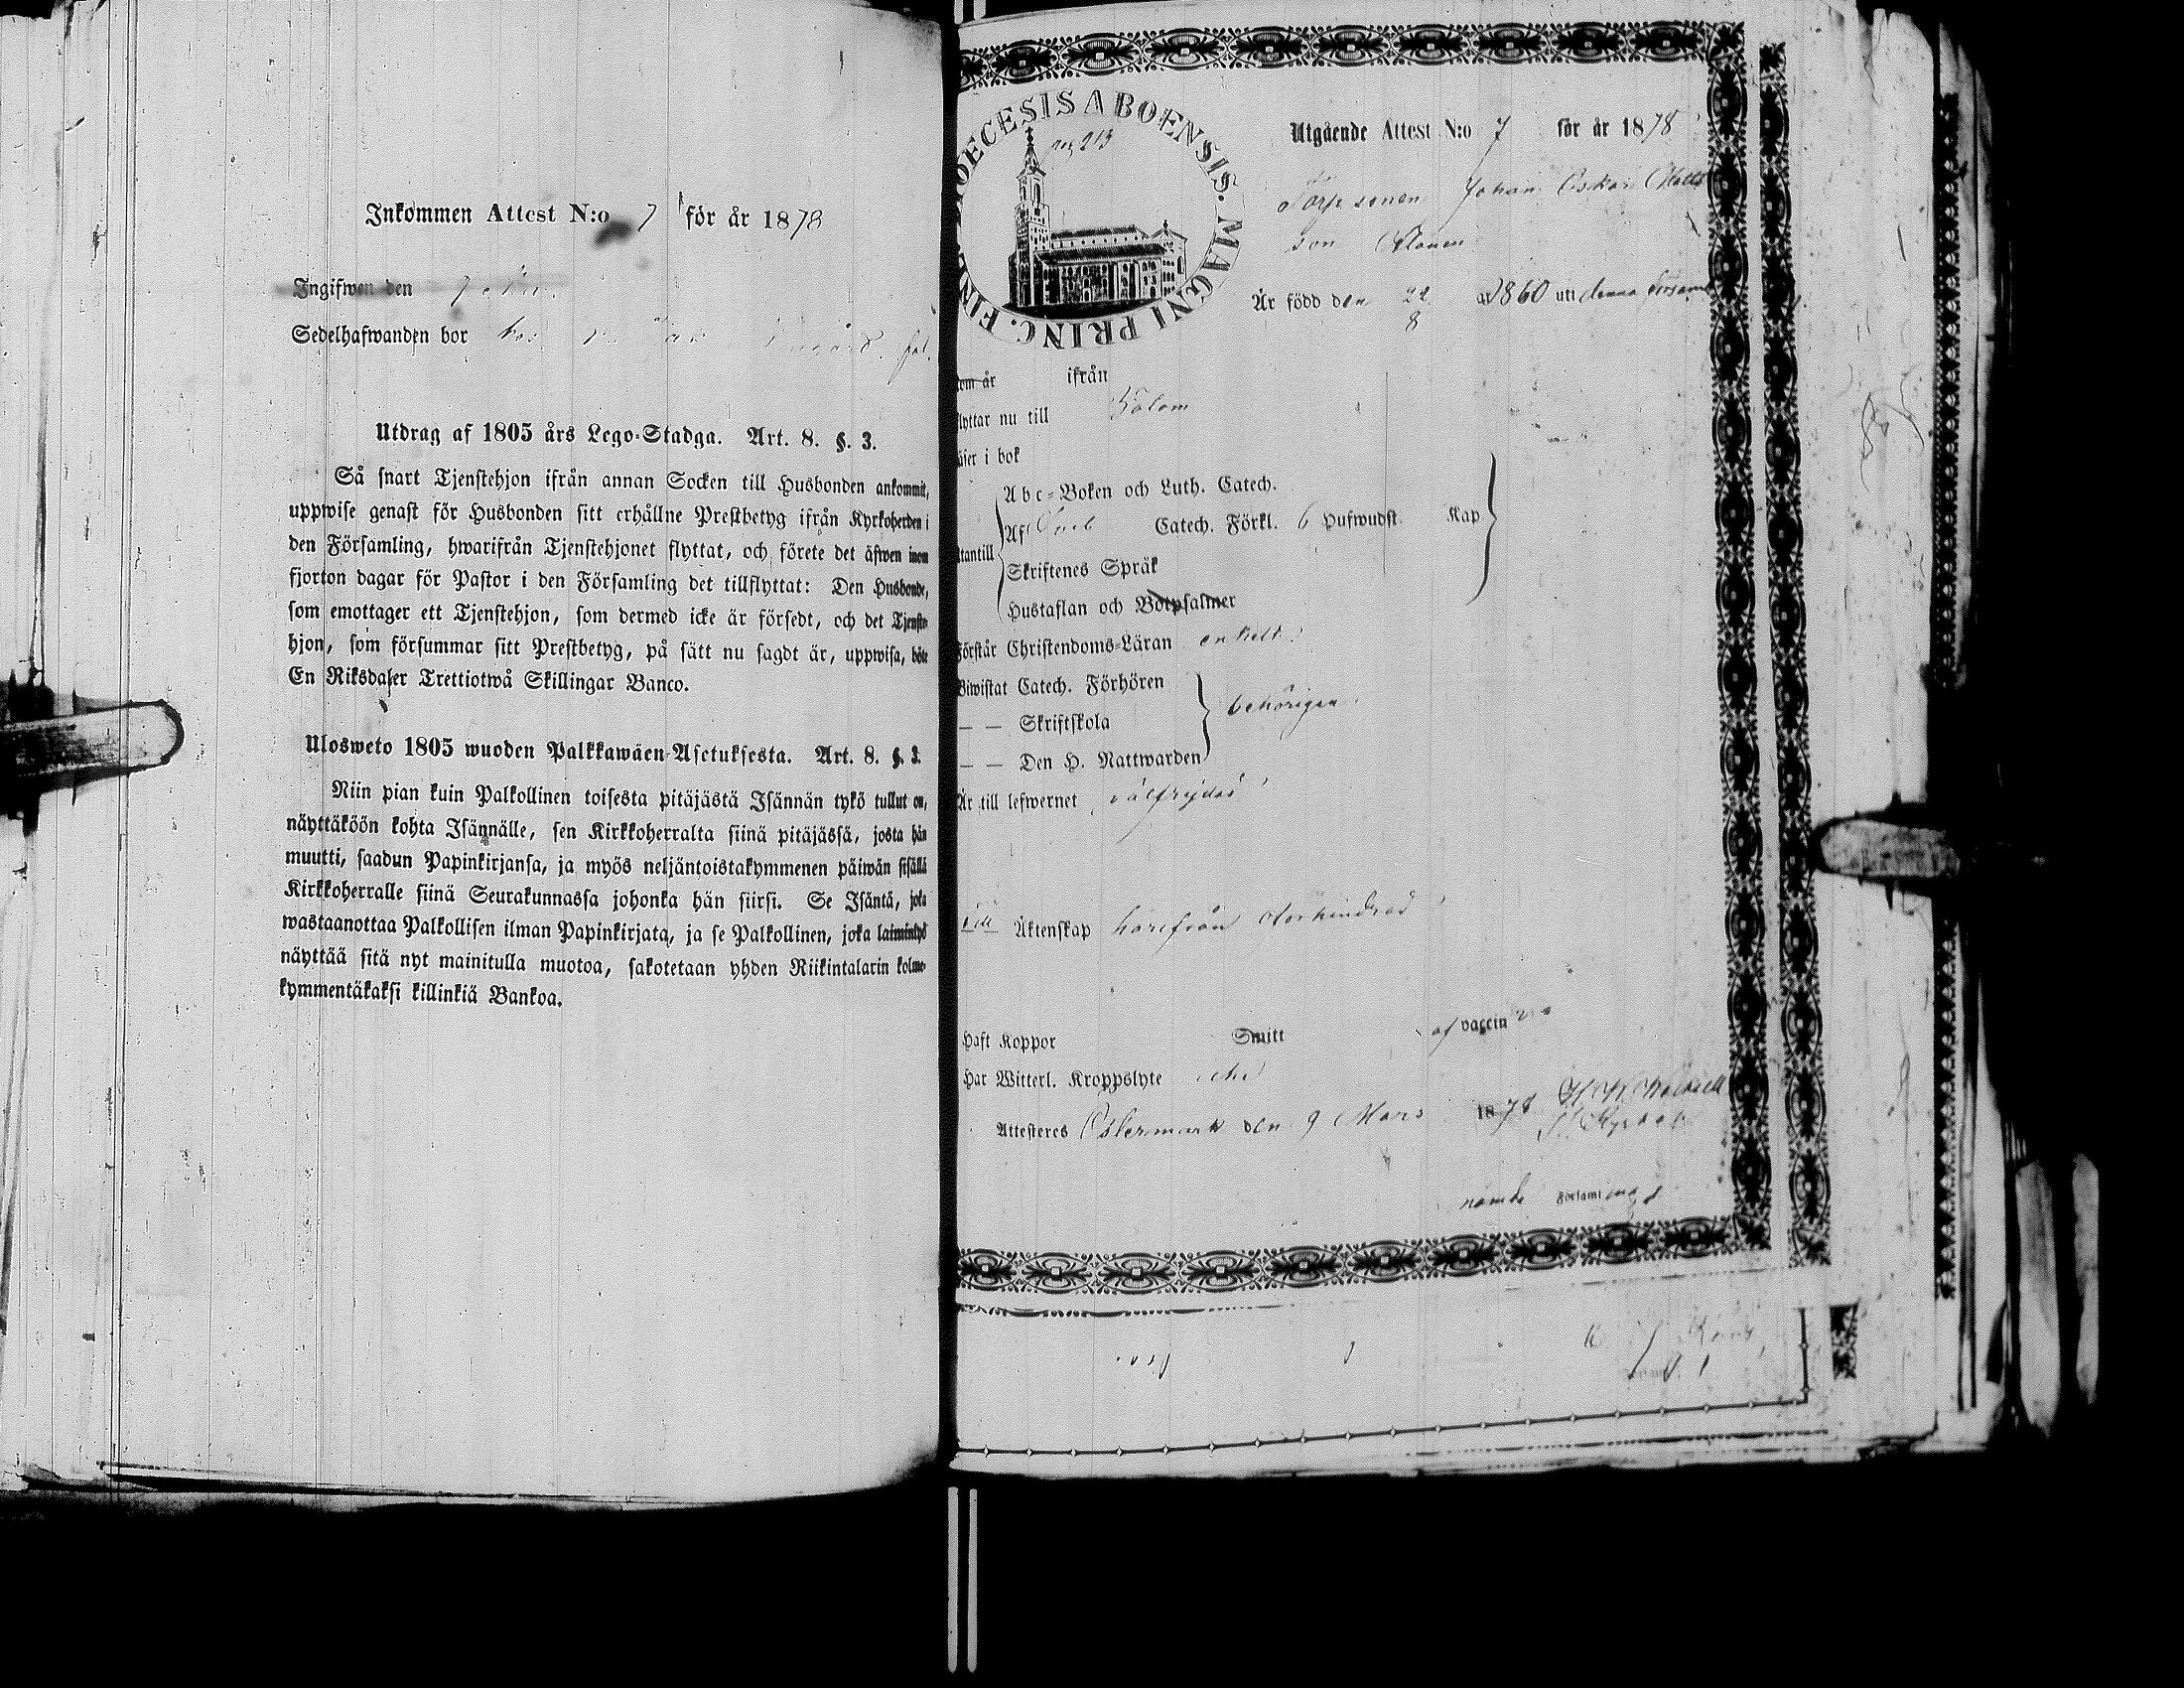 Inkommen Attest N:o 7 för år 1878
Ingifwen den
Sedelhafwanden bor hos
Utdrag af 1805 års Lego-Stadga. Art. 8. §. 3.
Så snart Tjenstehjon ifrån annan Socken till Husbonden ankommit,
uppwise genast för Husbonden sitt erhållne Prestbetyg ifrån Kyrkoherden i
den Församling, hwarifrån Tjenstehjonet flyttat, och förete det äfwen inom
fjorton dagar för Pastor i den Församling det tillflyttat: Den Husbonde,
som emottager ett Tjenstehjon, som dermed icke är försedt, och det Tjenste-
hjon, som försummar sitt Prestbetyg, på sätt nu sagdt är, uppwisa, böte
En Riksdaler Trettiotwå Skillingar Banco.
Ulosweto 1805 wuoden Palkkawäen-Asetuksesta. Art. 8. §. 3.
Niin pian kuin Palkollinen toisesta pitäjästä Isännän tykö tullut on,
näyttäköön kohta Isännälle, sen Kirkkoherralta siinä pitäjässä, josta hän
muutti, saadun Papinkirjansa, ja myös neljäntoistakymmenen päiwän sisällä
Kirkkoherralle siinä Seurakunnassa johonka hän siirsi. Se Isäntä, joka
wastaanottaa Palkollisen ilman Papinkirjata, ja se Palkollinen, joka laiminlyö
näyttää sitä nyt mainitulla muotoa, sakotetaan yhden Riikintalarin kolme-
kymmentäkaksi killinkiä Bankoa.
DIOECESIS ABOENSIS. MAGNI PRINC. FINL.
pag 213
Utgående Attest N:o 7 för år 1878
Torp sonen Johan Oskar Matts
son
Är född den 22/8 år 1860 uti denna försam
kom år ifrån
flyttar nu till
Läser i bok
Abc-Boken och Luth. Catech.
Utantill Af Catech. Förkl. 6 Hufwudst. Kap
Skriftenes Språk
Hustaflan och Botpsalmer
Förstår Christendoms-Läran enkelt
Biwistat Catech. Förhören
— — Skriftskola behörigen
— — Den H. Nattwarden
Är till lefwernet välfrejdad
till Äktenskap härifrån ohindrad
Haft Koppor Smitt af vaccin
Har Witterl. Kroppslyte icke
Attesteres Östermark den 9 Mars 1878
nämde Församlings